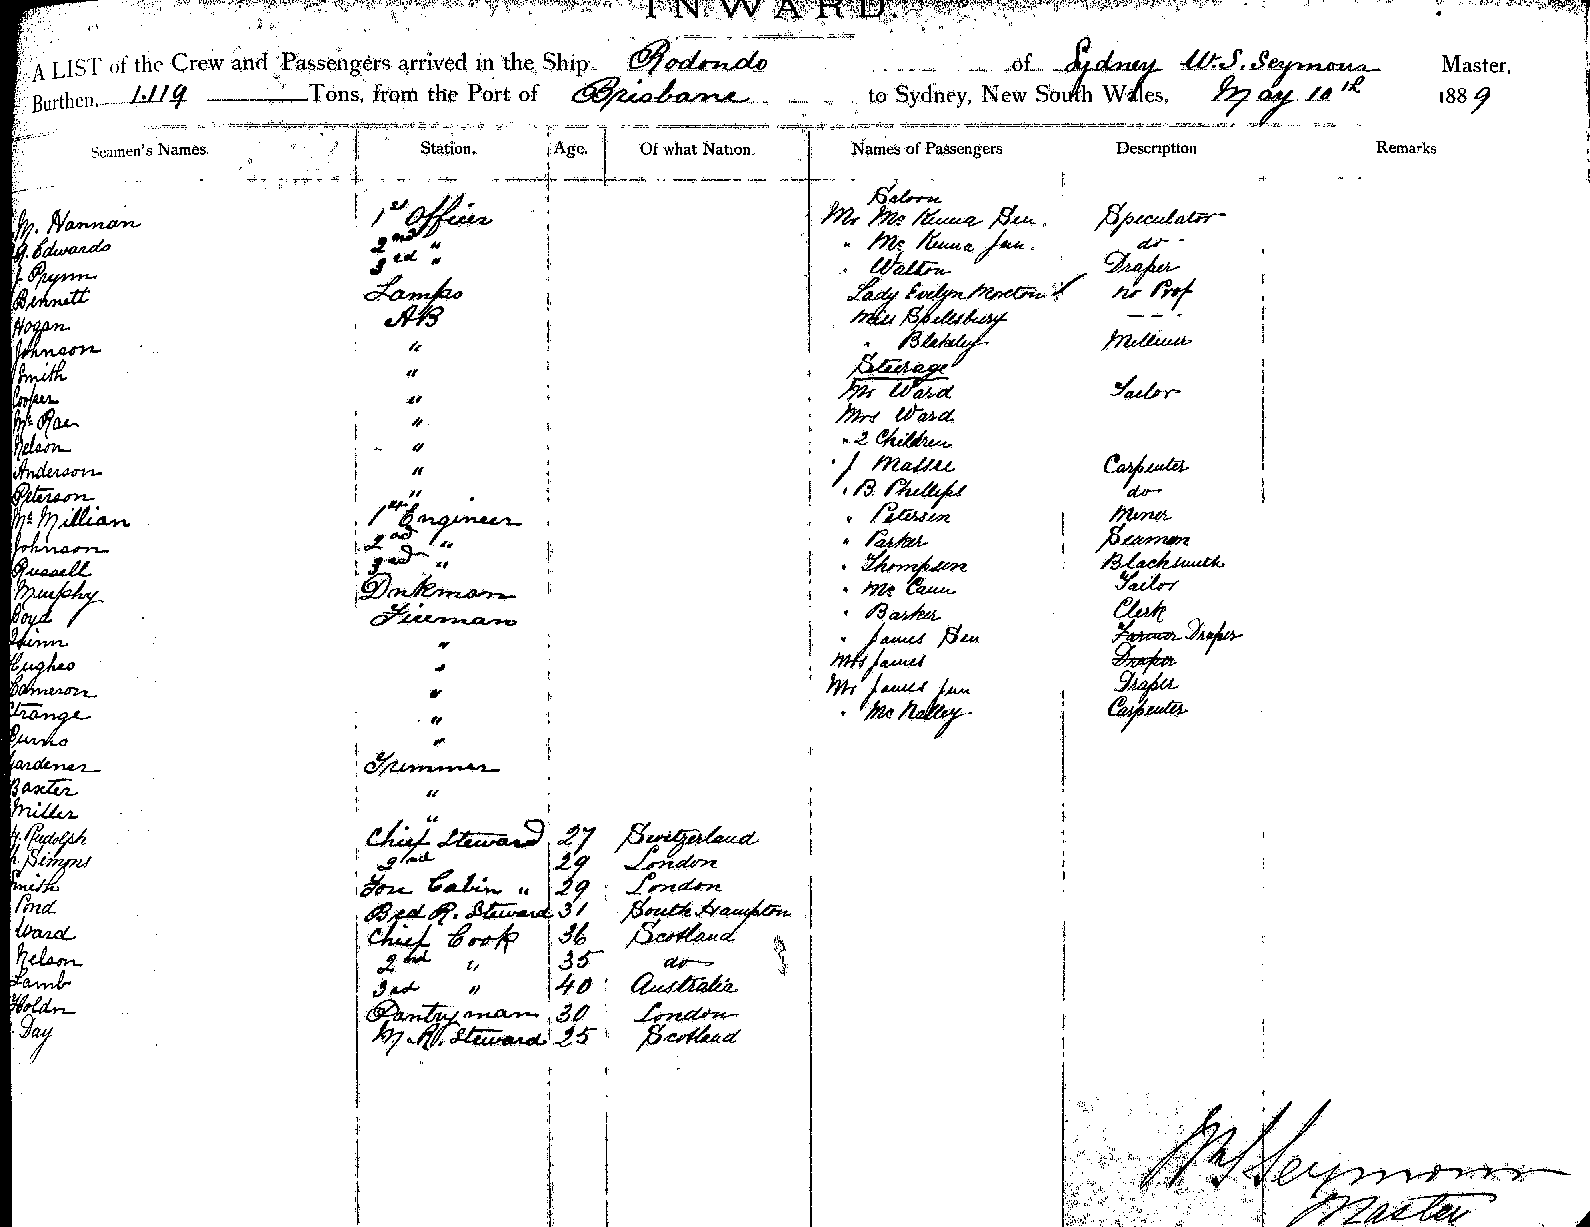 INWARD.
A LIST of the Crew and Passengers arrived in the Ship Rodondo of Sydney W. S. Seymour Master,
Burthen, 1.119 Tons, from the Port of Brisbane to Sydney, New South Wales, May 10th 1889
Seamen's Names. Station. Age. Of what Nation. Names of Passengers Description Remarks
Saloon
M. Hannan 1st Officer Mr Mc Kenna Sen. Speculator
G. Edwards 2nd " " Mc Kenna Jun. do
J. Prynn 3rd " " Walton Draper
Bennett Lamps Lady Evelyn Moreton no Prof
Hogan AB Miss Spillsbury - - -
Johnson " " Blakeley Milliner
Smith " Steerage
Cooper " Mr Ward Tailor
Mc Rae " Mrs Ward
Nelson " " 2 Children
Anderson " " J Massee Carpenter
Peterson " " B. Phillips do
Mc Millian 1st Engineer " Petersen Miner
Johnson 2nd " " Parker Seaman
Russell 3rd " " Thompson Blacksmith
Murphy Dnkman " Mc Cann Tailor
Boyd Fireman " Barker Clerk
Quinn " " James Sen Farmer Draper
Hughes " Mrs James Draper
Cameron " Mr James Jun Draper
Strange " " Mc Nalley Carpenter
Burns "
Gardener Trimmer
Baxter "
Miller "
Rudolph Chief Steward 27 Switzerland
Simons 2nd 29 London
Smith Fore Cabin " 29 London
Pond Bed R. Steward 31 South Hampton
Ward Chief Cook 36 Scotland
Nelson 2nd " 35 do
Lamb 3rd " 40 Australia
Holdn Pantryman 30 London
Day M. R. Steward 25 Scotland
W S Seymour
Master